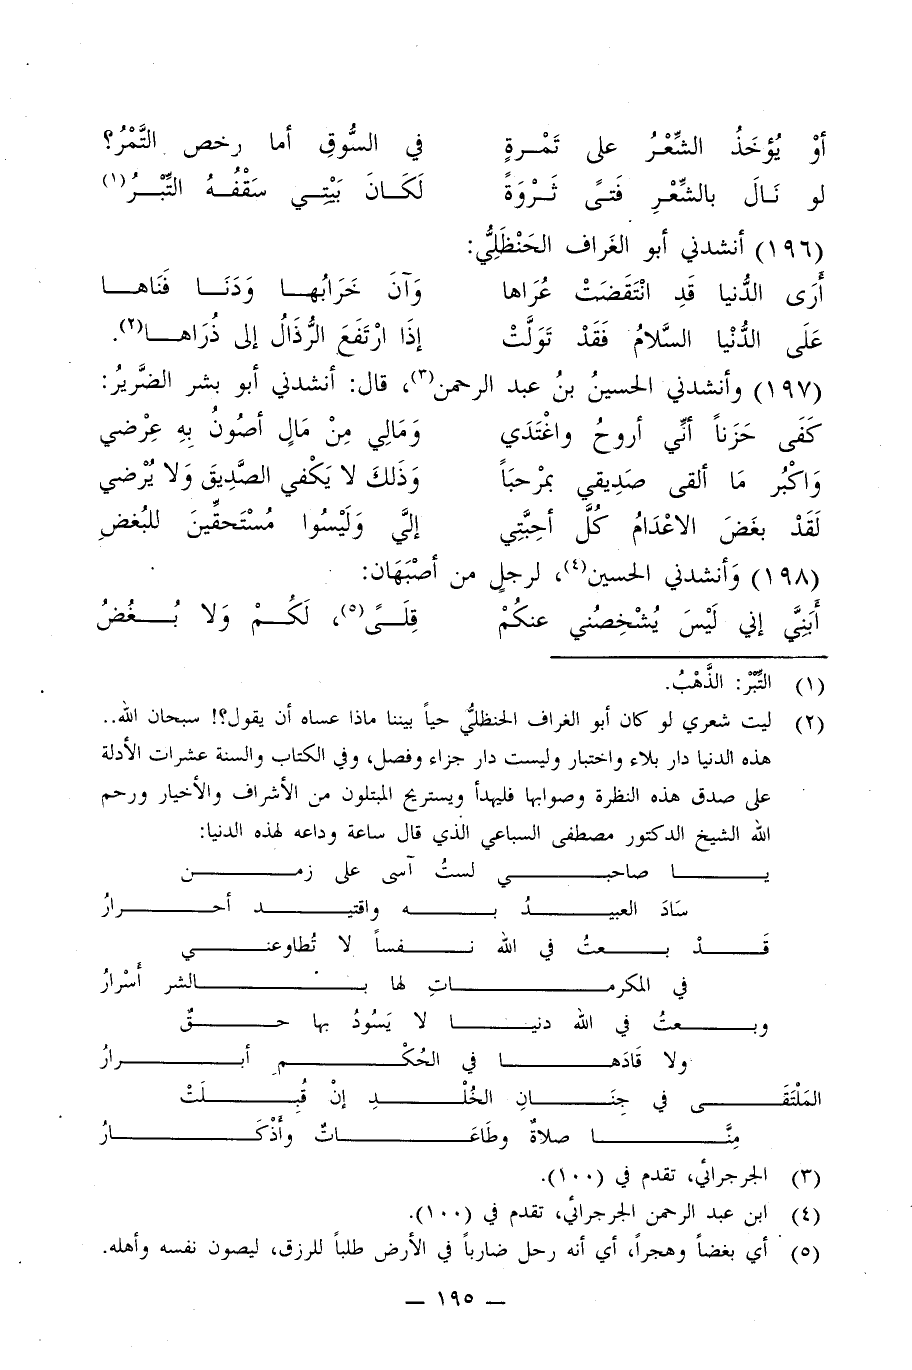 أوْ يُؤخَذُ الشِّعْرُ على تَمْرةٍ في السُّوقِ أما رخص التَّمْرُ؟
لو نَالَ بالشِّعْرِ فَتىً ثَرْوَةً لَكَانَ بَيْتِي سَقْفُهُ التِّبْرُ(١)
(١٩٦) أنشدني أبو الغَراف الحَنْظَلِيُّ:
أَرَى الدُّنيا قَدِ انْتَقَضَتْ عُرَاها وَآنَ خَرَابُها وَدَنَا فَنَاها
عَلَى الدُّنْيا السَّلامُ فَقَدْ تَوَلَّتْ إذَا ارْتَفَعَ الرُّذَالُ إلى ذُرَاها(٢).
(١٩٧) وأنشدني الحسينُ بنُ عبد الرحمن(٣)، قال: أنشدني أبو بشر الضَّريرُ:
كَفَى حَزَناً أنّي أروحُ واغْتَدَي وَمَالِي مِنْ مَالٍ أصُونُ بِهِ عِرْضي
وَاكْبُر مَا ألقى صَدِيقي بمرْحبَاً وَذَلكَ لا يَكْفي الصَّدِيقَ وَلا يُرْضي
لَقَدْ بغَضَ الاعْدَامُ كُلَّ أحِبَّتِي إليَّ وَلَيْسُوا مُسْتَحقِّينَ للبُغضِ
(١٩٨) وَأنشدني الحسين(٤)، لرجلٍ من أصْبَهَان:
أَبَنِيَّ إني لَيْسَ يُشْخِصُني عنكُمْ قِلَىً(٥)، لَكُمْ وَلا بُغُضُ
(١) التِّبْرُ: الذَّهْبُ.
(٢) ليت شعري لو كان أبو الغراف الحنظليُّ حياً بيننا ماذا عساه أن يقول؟! سبحان الله..
هذه الدنيا دار بلاء واختبار وليست دار جزاء وفصل، وفي الكتاب والسنة عشرات الأدلة
على صدق هذه النظرة وصوابها فليهدأ ويستريح المبتلون من الأشراف والأخيار ورحم
الله الشيخ الدكتور مصطفى السباعي الذي قال ساعة وداعه لهذه الدنيا:
يا صاحبي لستُ آسى على زمن
سَادَ العبيدُ به واقتيد أحرارُ
قَدْ بعتُ في الله نفساً لا تُطاوعني
في المكرماتِ لها بالشر أسْرارُ
وبعتُ في الله دنيا لا يَسُودُ بها حقٌ
ولا قَادَها في الحُكْمِ أبرارُ
المَلْتَقَى في جِنَانِ الخُلْدِ إنْ قُبِلَتْ
مِنَّا صلاةٌ وطَاعَاتٌ وأَذْكَارُ
(٣) الجرجرائي، تقدم في (١٠٠).
(٤) ابن عبد الرحمن الجرجرائي، تقدم في (١٠٠).
(٥) أي بغضاً وهجراً، أي أنه رحل ضارباً في الأرض طلباً للرزق، ليصون نفسه وأهله.
— ١٩٥ —